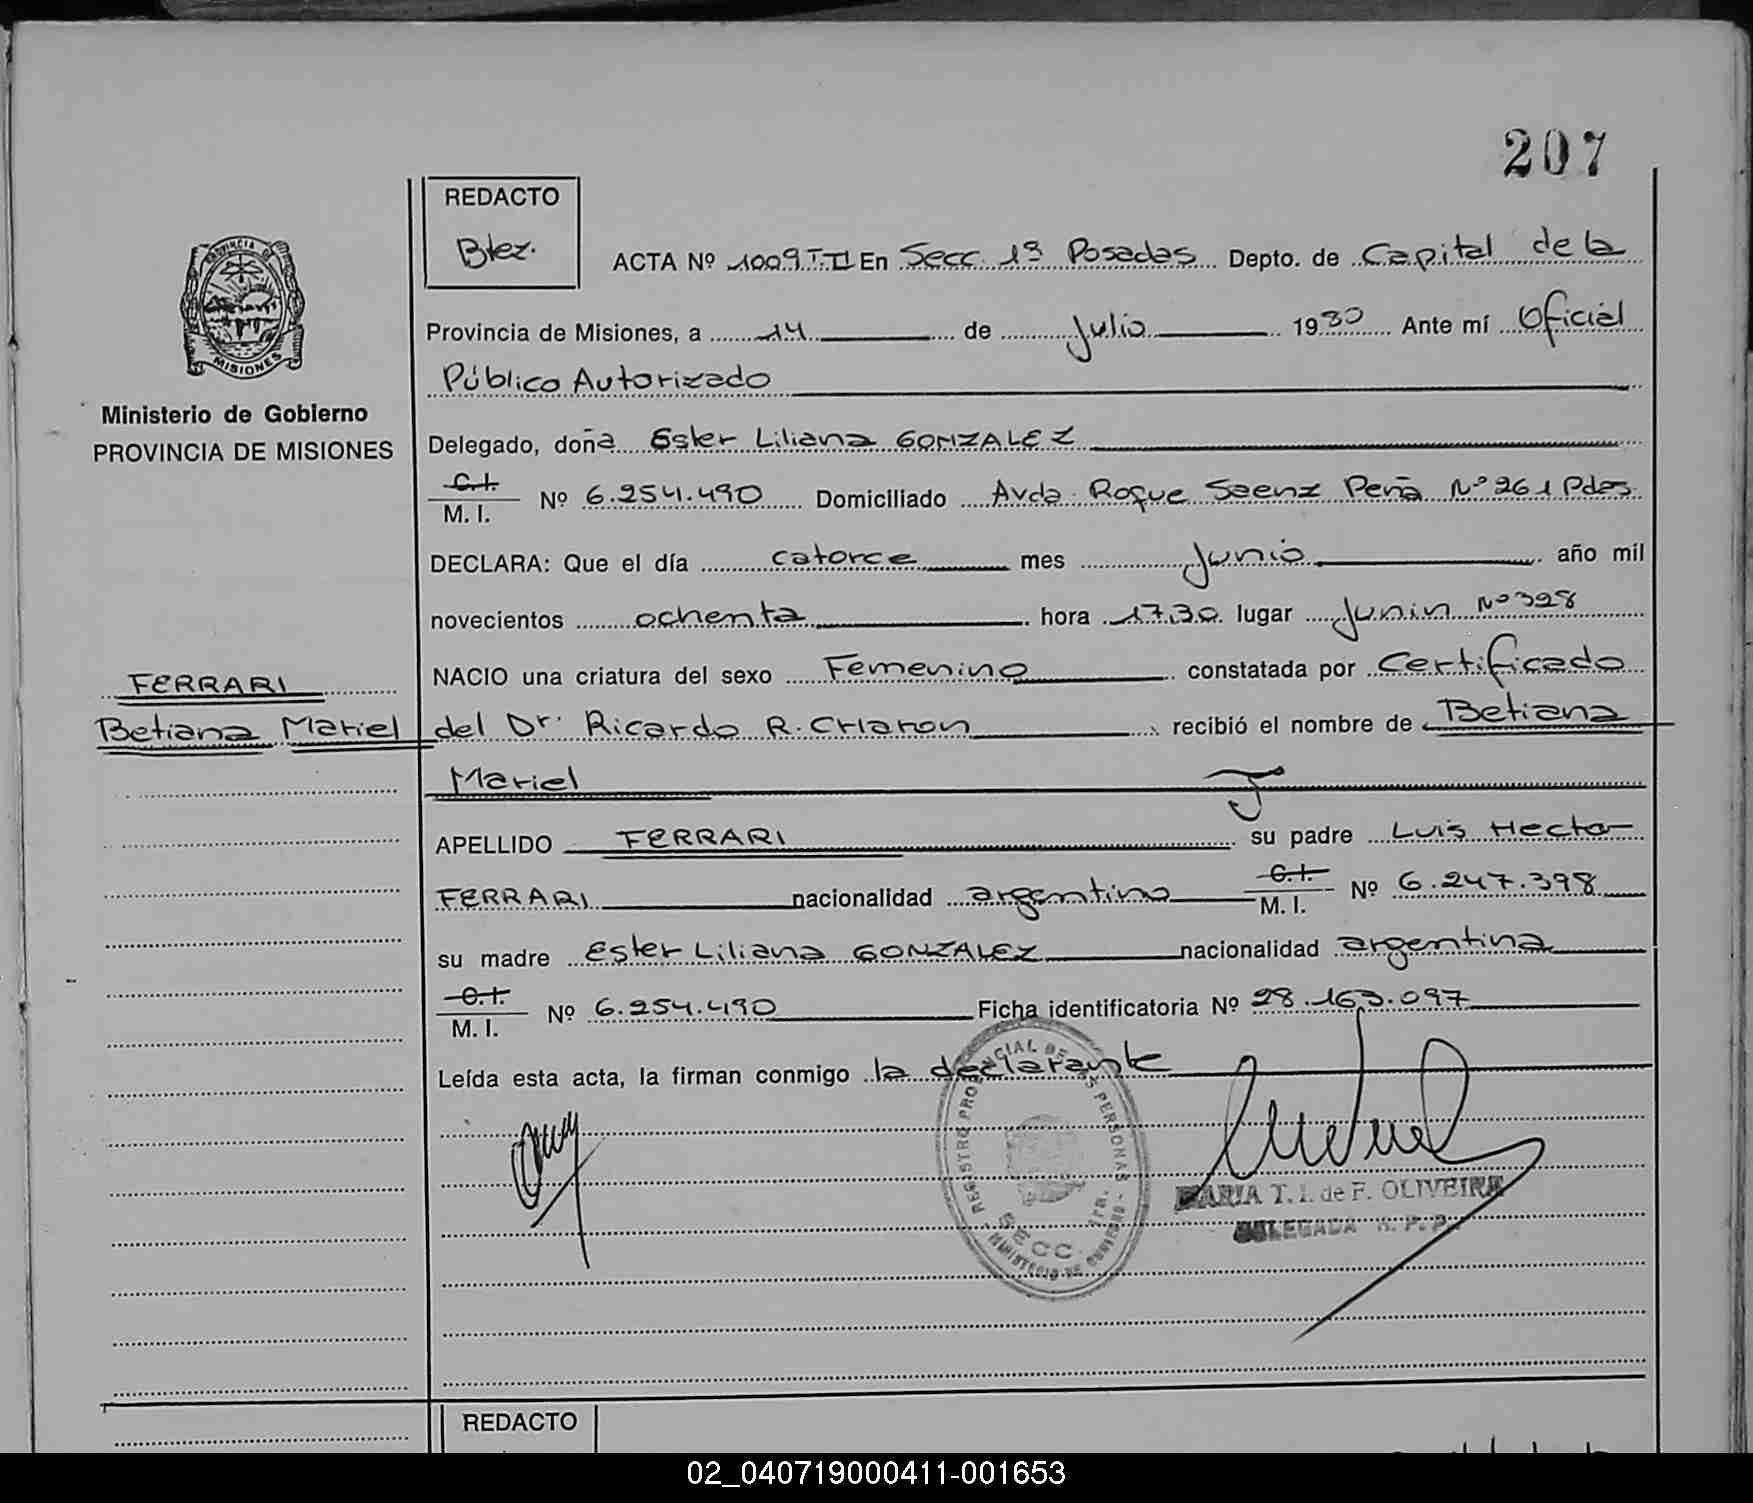 207
REDACTO
Btez.
ACTA Nº 1009 T.II En Secc. 1ª Posadas Depto. de Capital de la
Provincia de Misiones, a 14 de Julio 1980 Ante mí Oficial
Público Autorizado
PROVINCIA DE MISIONES
Ministerio de Gobierno
PROVINCIA DE MISIONES
Delegado, doña Ester Liliana GONZALEZ
C.I.
M. I. Nº 6.254.490 Domiciliado Avda. Roque Saenz Peña Nº 261 Pdas.
DECLARA: Que el día catorce mes Junio año mil
novecientos ochenta hora 17,30 lugar Junin Nº 328
NACIO una criatura del sexo Femenino constatada por Certificado
FERRARI
Betiana Mariel
del Dr. Ricardo R. CHaron recibió el nombre de Betiana
Mariel
APELLIDO FERRARI su padre Luis Hector
FERRARI nacionalidad argentino C.I. M. I. Nº 6.247.398
su madre Ester Liliana GONZALEZ nacionalidad argentina
C.I.
M. I. Nº 6.254.490 Ficha identificatoria Nº 28.163.097
Leída esta acta, la firman conmigo la declarante
REGISTRO PROVINCIAL DE LAS PERSONAS - MINISTERIO DE GOBIERNO - SECC. 1ra.
MARIA T. I. de F. OLIVEIRA
DELEGADA R. P. P.
REDACTO
02_040719000411-001653